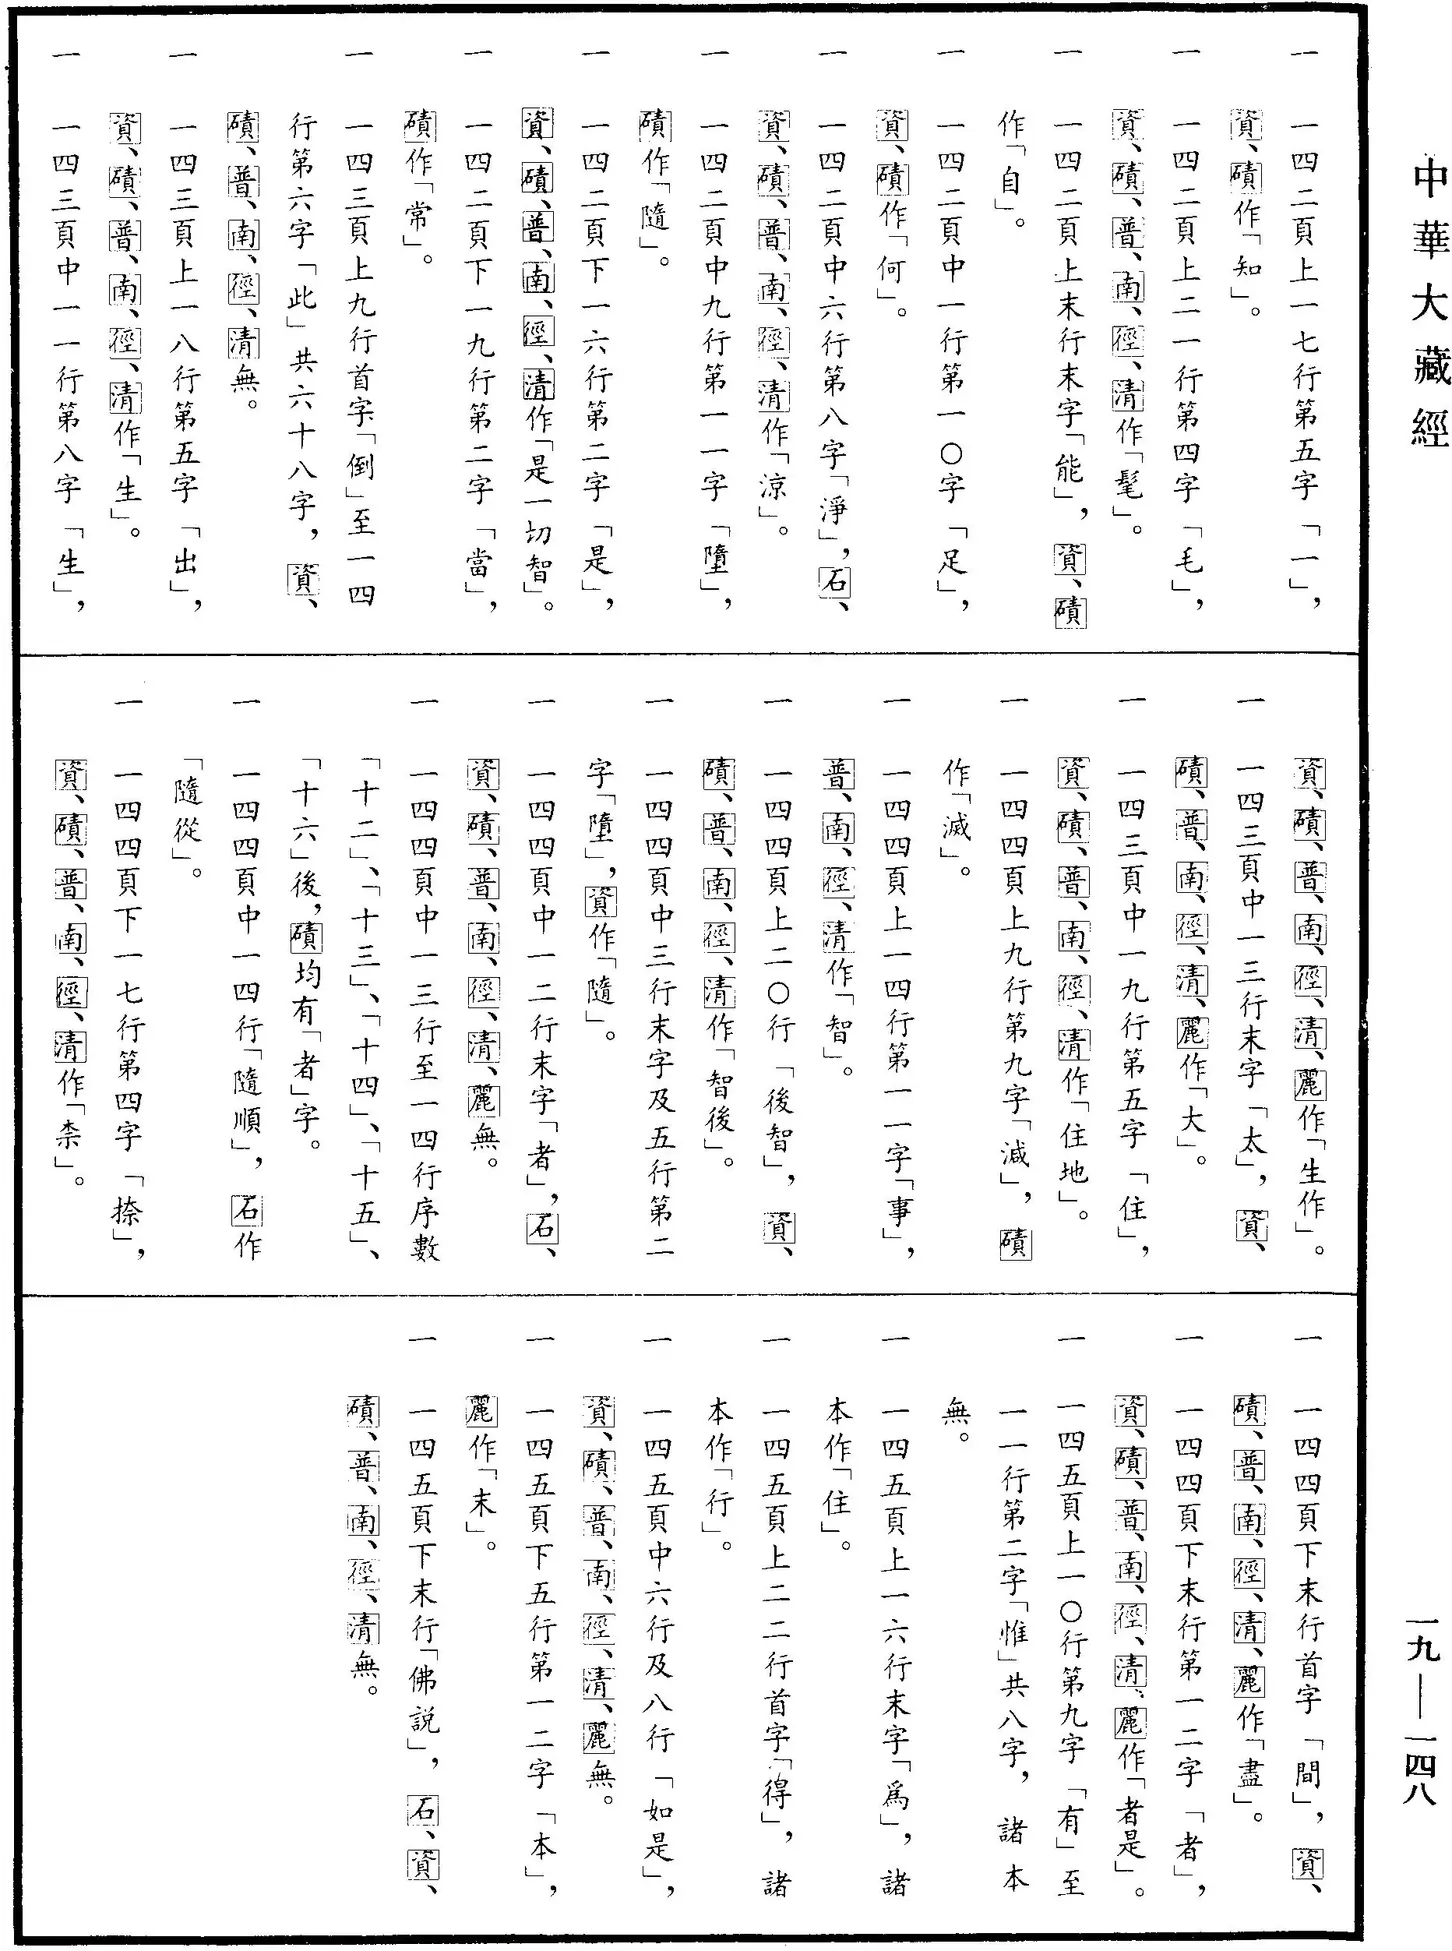 中華大藏經
一九—一四八
一 一四二頁上一七行第五字「一」，
資、磧作「知」。
一 一四二頁上二一行第四字「毛」，
資、磧、普、南、徑、清作「髦」。
一 一四二頁上末行末字「能」，資、磧
作「自」。
一 一四二頁中一行第一〇字「足」，
資、磧作「何」。
一 一四二頁中六行第八字「淨」，石、
資、磧、普、南、徑、清作「涼」。
一 一四二頁中九行第一一字「墮」，
磧作「隨」。
一 一四二頁下一六行第二字「是」，
資、磧、普、南、徑、清作「是一切智」。
一 一四二頁下一九行第二字「當」，
磧作「常」。
一 一四三頁上九行首字「倒」至一四
行第六字「此」共六十八字，資、
磧、普、南、徑、清無。
一 一四三頁上一八行第五字「出」，
資、磧、普、南、徑、清作「生」。
一 一四三頁中一一行第八字「生」，
資、磧、普、南、徑、清、麗作「生作」。
一 一四三頁中一三行末字「太」，資、
磧、普、南、徑、清、麗作「大」。
一 一四三頁中一九行第五字「住」，
資、磧、普、南、徑、清作「住地」。
一 一四四頁上九行第九字「減」，磧
作「滅」。
一 一四四頁上一四行第一一字「事」，
普、南、徑、清作「智」。
一 一四四頁上二〇行「後智」，資、
磧、普、南、徑、清作「智後」。
一 一四四頁中三行末字及五行第二
字「墮」，資作「隨」。
一 一四四頁中一二行末字「者」，石、
資、磧、普、南、徑、清、麗無。
一 一四四頁中一三行至一四行序數
「十二」、「十三」、「十四」、「十五」、
「十六」後，磧均有「者」字。
一 一四四頁中一四行「隨順」，石作
「隨從」。
一 一四四頁下一七行第四字「捺」，
資、磧、普、南、徑、清作「柰」。
一 一四四頁下末行首字「間」，資、
磧、普、南、徑、清、麗作「盡」。
一 一四四頁下末行第一二字「者」，
資、磧、普、南、徑、清、麗作「者是」。
一 一四五頁上一〇行第九字「有」至
一一行第二字「惟」共八字，諸本
無。
一 一四五頁上一六行末字「爲」，諸
本作「住」。
一 一四五頁上二二行首字「得」，諸
本作「行」。
一 一四五頁中六行及八行「如是」，
資、磧、普、南、徑、清、麗無。
一 一四五頁下五行第一二字「本」，
麗作「末」。
一 一四五頁下末行「佛說」，石、資、
磧、普、南、徑、清無。